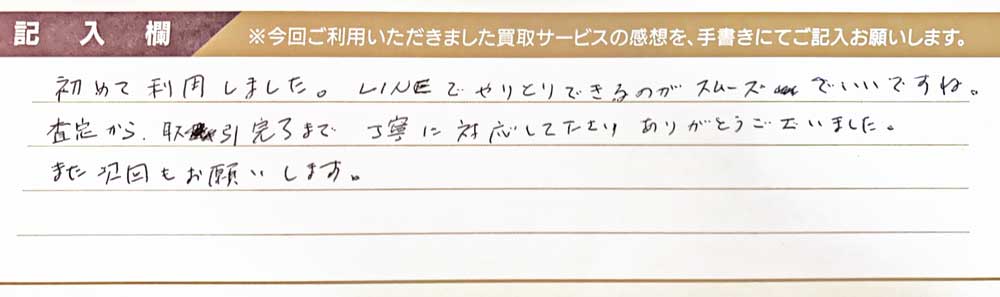 記入欄
※今回ご利用いただきました買取サービスの感想を、手書きにてご記入お願いします。
初めて利用しました。LINEでやりとりできるのがスムーズでいいですね。
査定から、取引完了まで丁寧に対応して下さりありがとうございました。
また次回もお願いします。